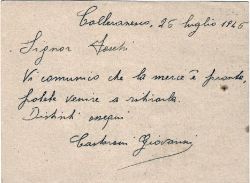 26 luglio 1946
Signor
Vi comunico che la merce è pronta,
potete venire a ritirarla.
Distinti ossequi
Giovanni